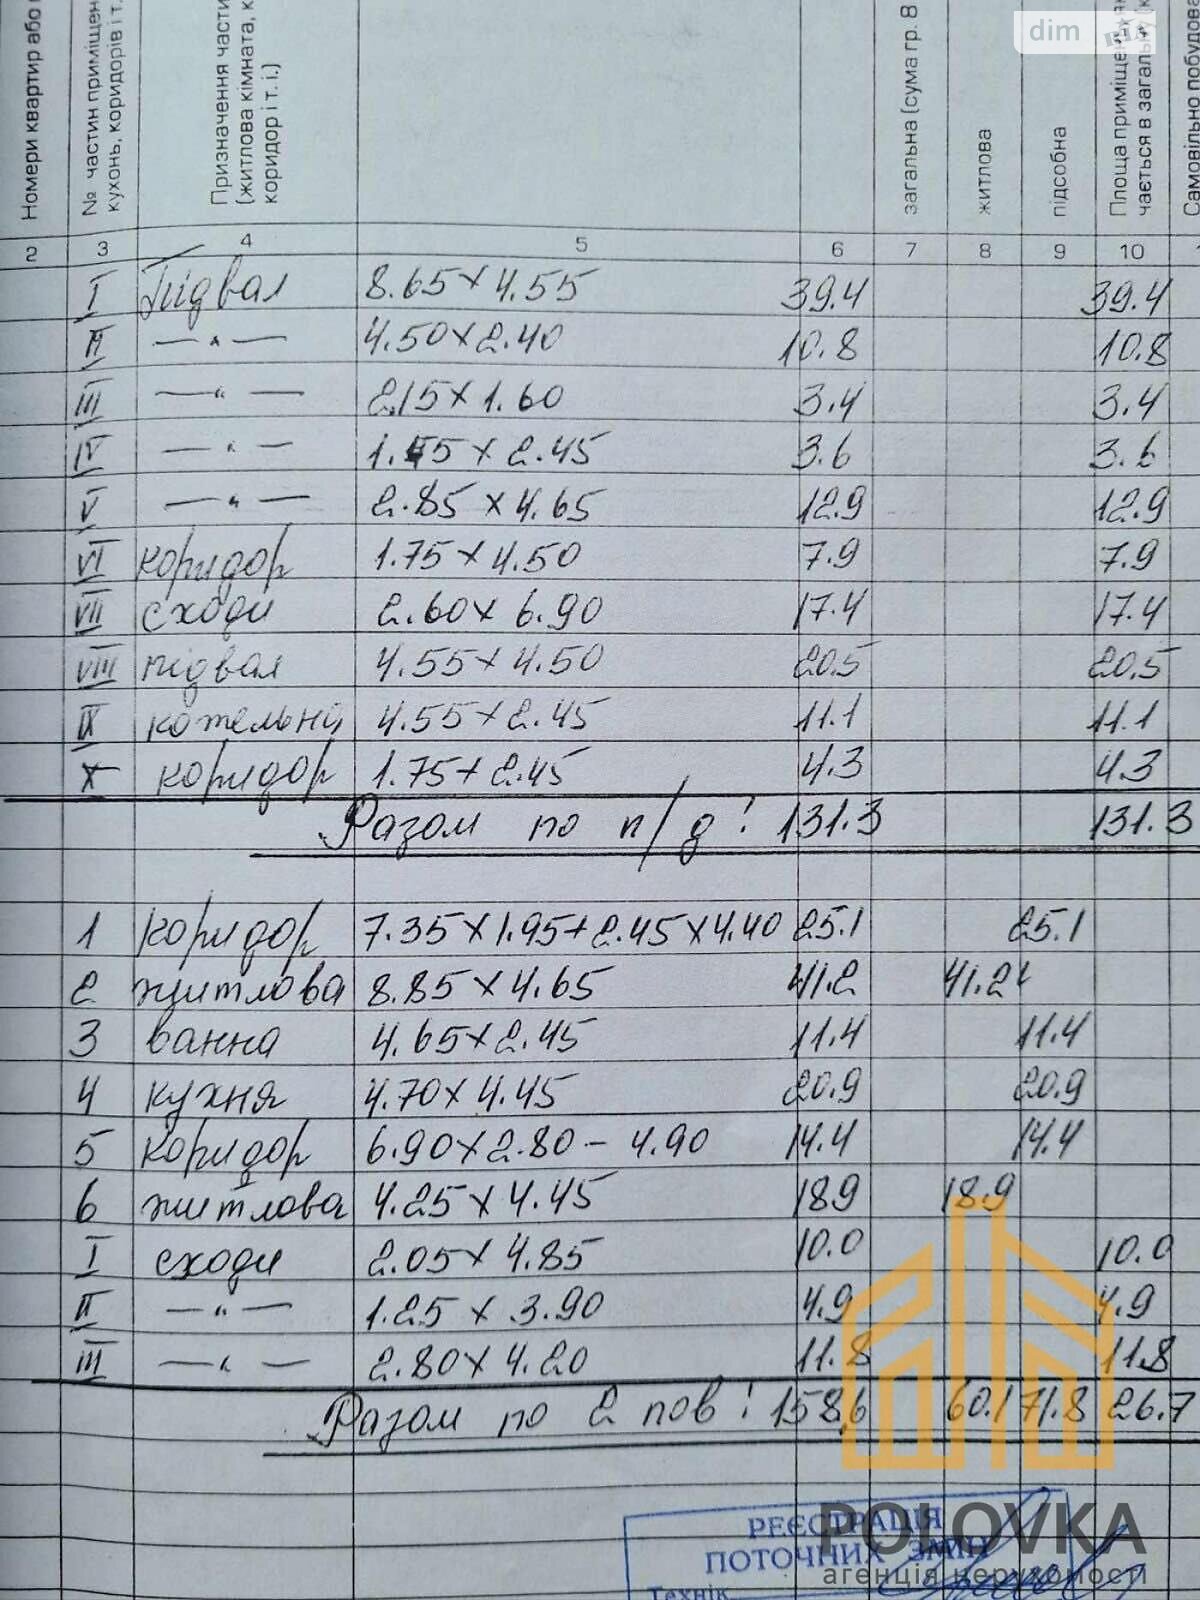 Номери квартир або
№ частин приміщен
кухонь, коридорів і т.
Призначення части
(житлова кімната, к
коридор і т. і.)
загальна (сума гр. 8
житлова
підсобна
Площа приміщен
чається в загальну (к
Самовільно побудова
dim ria
2 3 4 5 6 7 8 9 10
I Підвал 8.65×4.55 39.4 39.4
II —"— 4.50×2.40 10.8 10.8
III —"— 2.15×1.60 3.4 3.4
IV —"— 1.45×2.45 3.6 3.6
V —"— 2.85×4.65 12.9 12.9
VI коридор 1.75×4.50 7.9 7.9
VII сходи 2.60×6.90 17.4 17.4
VIII підвал 4.55×4.50 20.5 20.5
IX котельня 4.55×2.45 11.1 11.1
X коридор 1.75×2.45 4.3 4.3
Разом по п/д: 131.3 131.3
1 коридор 7.35×1.95+2.45×4.40 25.1 25.1
2 житлова 8.85×4.65 41.2 41.2
3 ванна 4.65×2.45 11.4 11.4
4 кухня 4.70×4.45 20.9 20.9
5 коридор 6.90×2.80-4.90 14.4 14.4
6 житлова 4.25×4.45 18.9 18.9
I сходи 2.05×4.85 10.0 10.0
II —"— 1.25×3.90 4.9 4.9
III —"— 2.80×4.20 11.8 11.8
Разом по 2 пов: 158.6 60.1 71.8 26.7
РЕЄСТРАЦІЯ
ПОТОЧНИХ ЗМІН
Технік
POLOVKA
агенція нерухомості